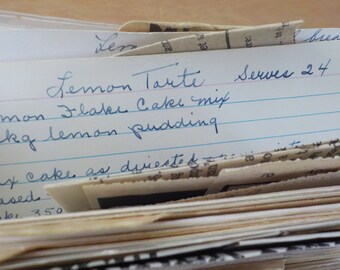 Lem
brea
Lemon Torte Serves 24
mon Flake Cake mix
kg lemon pudding
x cake as directed
ased
350